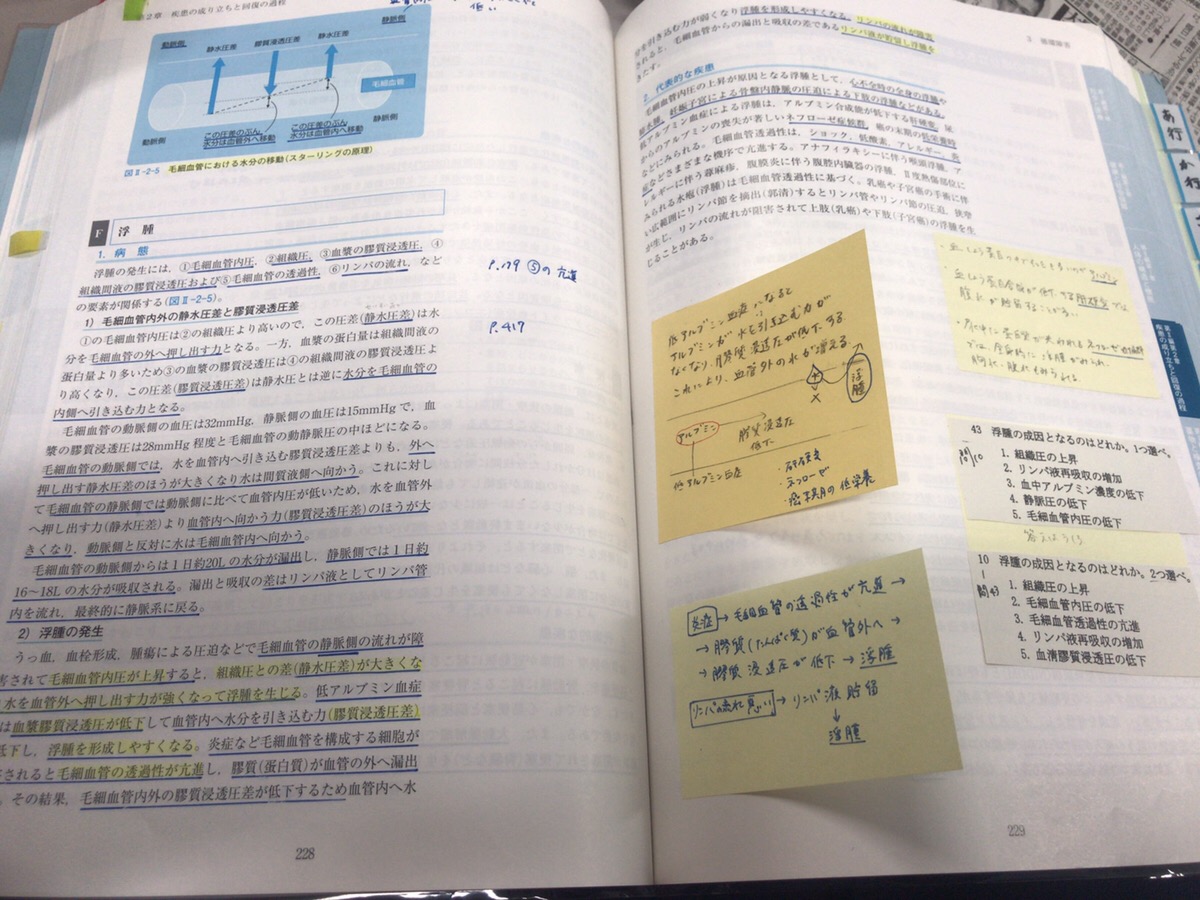 第2章 疾患の成り立ちと回復の過程
低い
動脈側
静水圧差
膠質浸透圧差
静水圧差
静脈側
毛細血管
この圧差のぶん,
水分は血管外へ移動
この圧差のぶん,
水分は血管内へ移動
動脈側
静脈側
図Ⅱ-2-5 毛細血管における水分の移動(スターリングの原理)
F 浮腫
1. 病態
浮腫の発生には, ①毛細血管内圧, ②組織圧, ③血漿の膠質浸透圧, ④
組織間液の膠質浸透圧および⑤毛細血管の透過性, ⑥リンパの流れ, など
の要素が関係する(図Ⅱ-2-5)。
P.179 ⑤の亢進
1) 毛細血管内外の静水圧差と膠質浸透圧差
①の毛細血管内圧は②の組織圧より高いので, この圧差(静水圧差)は水
分を毛細血管の外へ押し出す力となる。一方, 血漿の蛋白量は組織間液の
蛋白量より多いため③の血漿の膠質浸透圧は④の組織間液の膠質浸透圧よ
り高くなり, この圧差(膠質浸透圧差)は静水圧とは逆に水分を毛細血管の
内側へ引き込む力となる。
P.417
毛細血管の動脈側の血圧は32mmHg, 静脈側の血圧は15mmHgで, 血
漿の膠質浸透圧は28mmHg程度と毛細血管の動静脈圧の中ほどになる。
毛細血管の動脈側では, 水を血管内へ引き込む膠質浸透圧差よりも, 外へ
押し出す静水圧差のほうが大きくなり水は間質液側へ向かう。これに対し
て毛細血管の静脈側では動脈側に比べて血管内圧が低いため, 水を血管外
へ押し出す力(静水圧差)より血管内へ向かう力(膠質浸透圧差)のほうが大
きくなり, 動脈側と反対に水は毛細血管内へ向かう。
毛細血管の動脈側からは1日約20Lの水分が漏出し, 静脈側では1日約
16〜18Lの水分が吸収される。漏出と吸収の差はリンパ液としてリンパ管
内を流れ, 最終的に静脈系に戻る。
2) 浮腫の発生
うっ血, 血栓形成, 腫瘍による圧迫などで毛細血管の静脈側の流れが障
害されて毛細血管内圧が上昇すると, 組織圧との差(静水圧差)が大きくな
水を血管外へ押し出す力が強くなって浮腫を生じる。低アルブミン血症
は血漿膠質浸透圧が低下して血管内へ水分を引き込む力(膠質浸透圧差)
低下し, 浮腫を形成しやすくなる。炎症など毛細血管を構成する細胞が
されると毛細血管の透過性が亢進し, 膠質(蛋白質)が血管の外へ漏出
。その結果, 毛細血管内外の膠質浸透圧差が低下するため血管内へ水
228
3 循環障害
分を引き込む力が弱くなり浮腫を形成しやすくなる。リンパの流れが障害
されると, 毛細血管からの漏出と吸収の差であるリンパ液が貯留し浮腫を
きたす。
2. 代表的な疾患
毛細血管内圧の上昇が原因となる浮腫として, 心不全時の全身の浮腫や
肺水腫, 妊娠子宮による骨盤内静脈の圧迫による下肢の浮腫などがある。
低アルブミン血症による浮腫は, アルブミン合成能が低下する肝硬変, 尿
からのアルブミンの喪失が著しいネフローゼ症候群, 癌の末期の低栄養時
などにみられる。毛細血管透過性は, ショック, 低酸素, アレルギー, 炎
症などさまざまな機序で亢進する。アナフィラキシーに伴う喉頭浮腫, ア
レルギーに伴う蕁麻疹, 腹膜炎に伴う腹腔内臓器の浮腫, Ⅱ度熱傷部位に
みられる水疱(浮腫)は毛細血管透過性に基づく。乳癌や子宮癌の手術に伴
い広範囲にリンパ節を摘出(郭清)するとリンパ管やリンパ節の圧迫, 狭窄
が生じ, リンパの流れが阻害されて上肢(乳癌)や下肢(子宮癌)の浮腫を生
じることがある。
低アルブミン血症になると
アルブミンが水を引き込む力が
なくなり, 膠質浸透圧が低下する
これにより, 血管外の水が増える。
浮腫
アルブミン
膠質浸透圧
低下
低アルブミン血症
・肝硬変
・ネフローゼ
・癌末期の低栄養
炎症→毛細血管の透過性が亢進→
→膠質(たんぱく質)が血管外へ→
→膠質浸透圧が低下→浮腫
リンパの流れ悪い→リンパ液貯留
↓
浮腫
43 浮腫の成因となるのはどれか。1つ選べ。
問10
1. 組織圧の上昇
2. リンパ液再吸収の増加
3. 血中アルブミン濃度の低下
4. 静脈圧の低下
5. 毛細血管内圧の低下
10 浮腫の成因となるのはどれか。2つ選べ。
問43
1. 組織圧の上昇
2. 毛細血管内圧の低下
3. 毛細血管透過性の亢進
4. リンパ液再吸収の増加
5. 血清膠質浸透圧の低下
229
あ行
か行
第Ⅱ編第2章
疾患の成り立ちと回復の過程